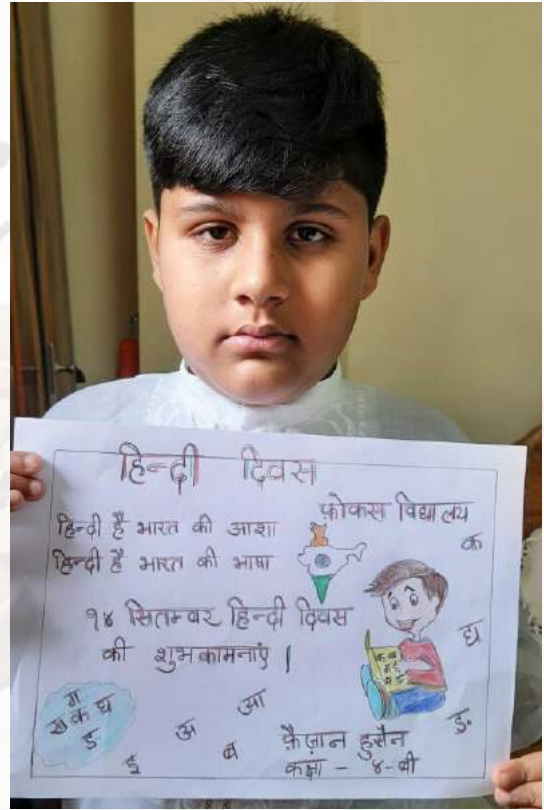 हिन्दी दिवस
फ़ोकस विद्यालय
हिन्दी है भारत की आशा
हिन्दी है भारत की भाषा
क
१४ सितम्बर हिन्दी दिवस
की शुभकामनाएं |
क ख
ग ई
घ ङ
घ
ग
ख क घ
ङ
आ
अ
ब
इ
ङ
फ़ैज़ान हुसैन
कक्षा - ४-बी